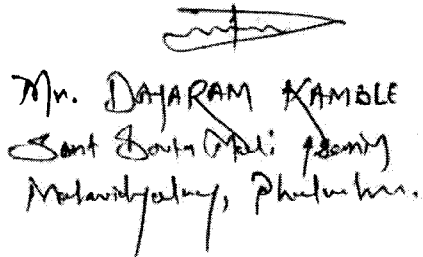 Mr. DAYARAM KAMBLE
Sant Savta Mali
Mahavidyalay,